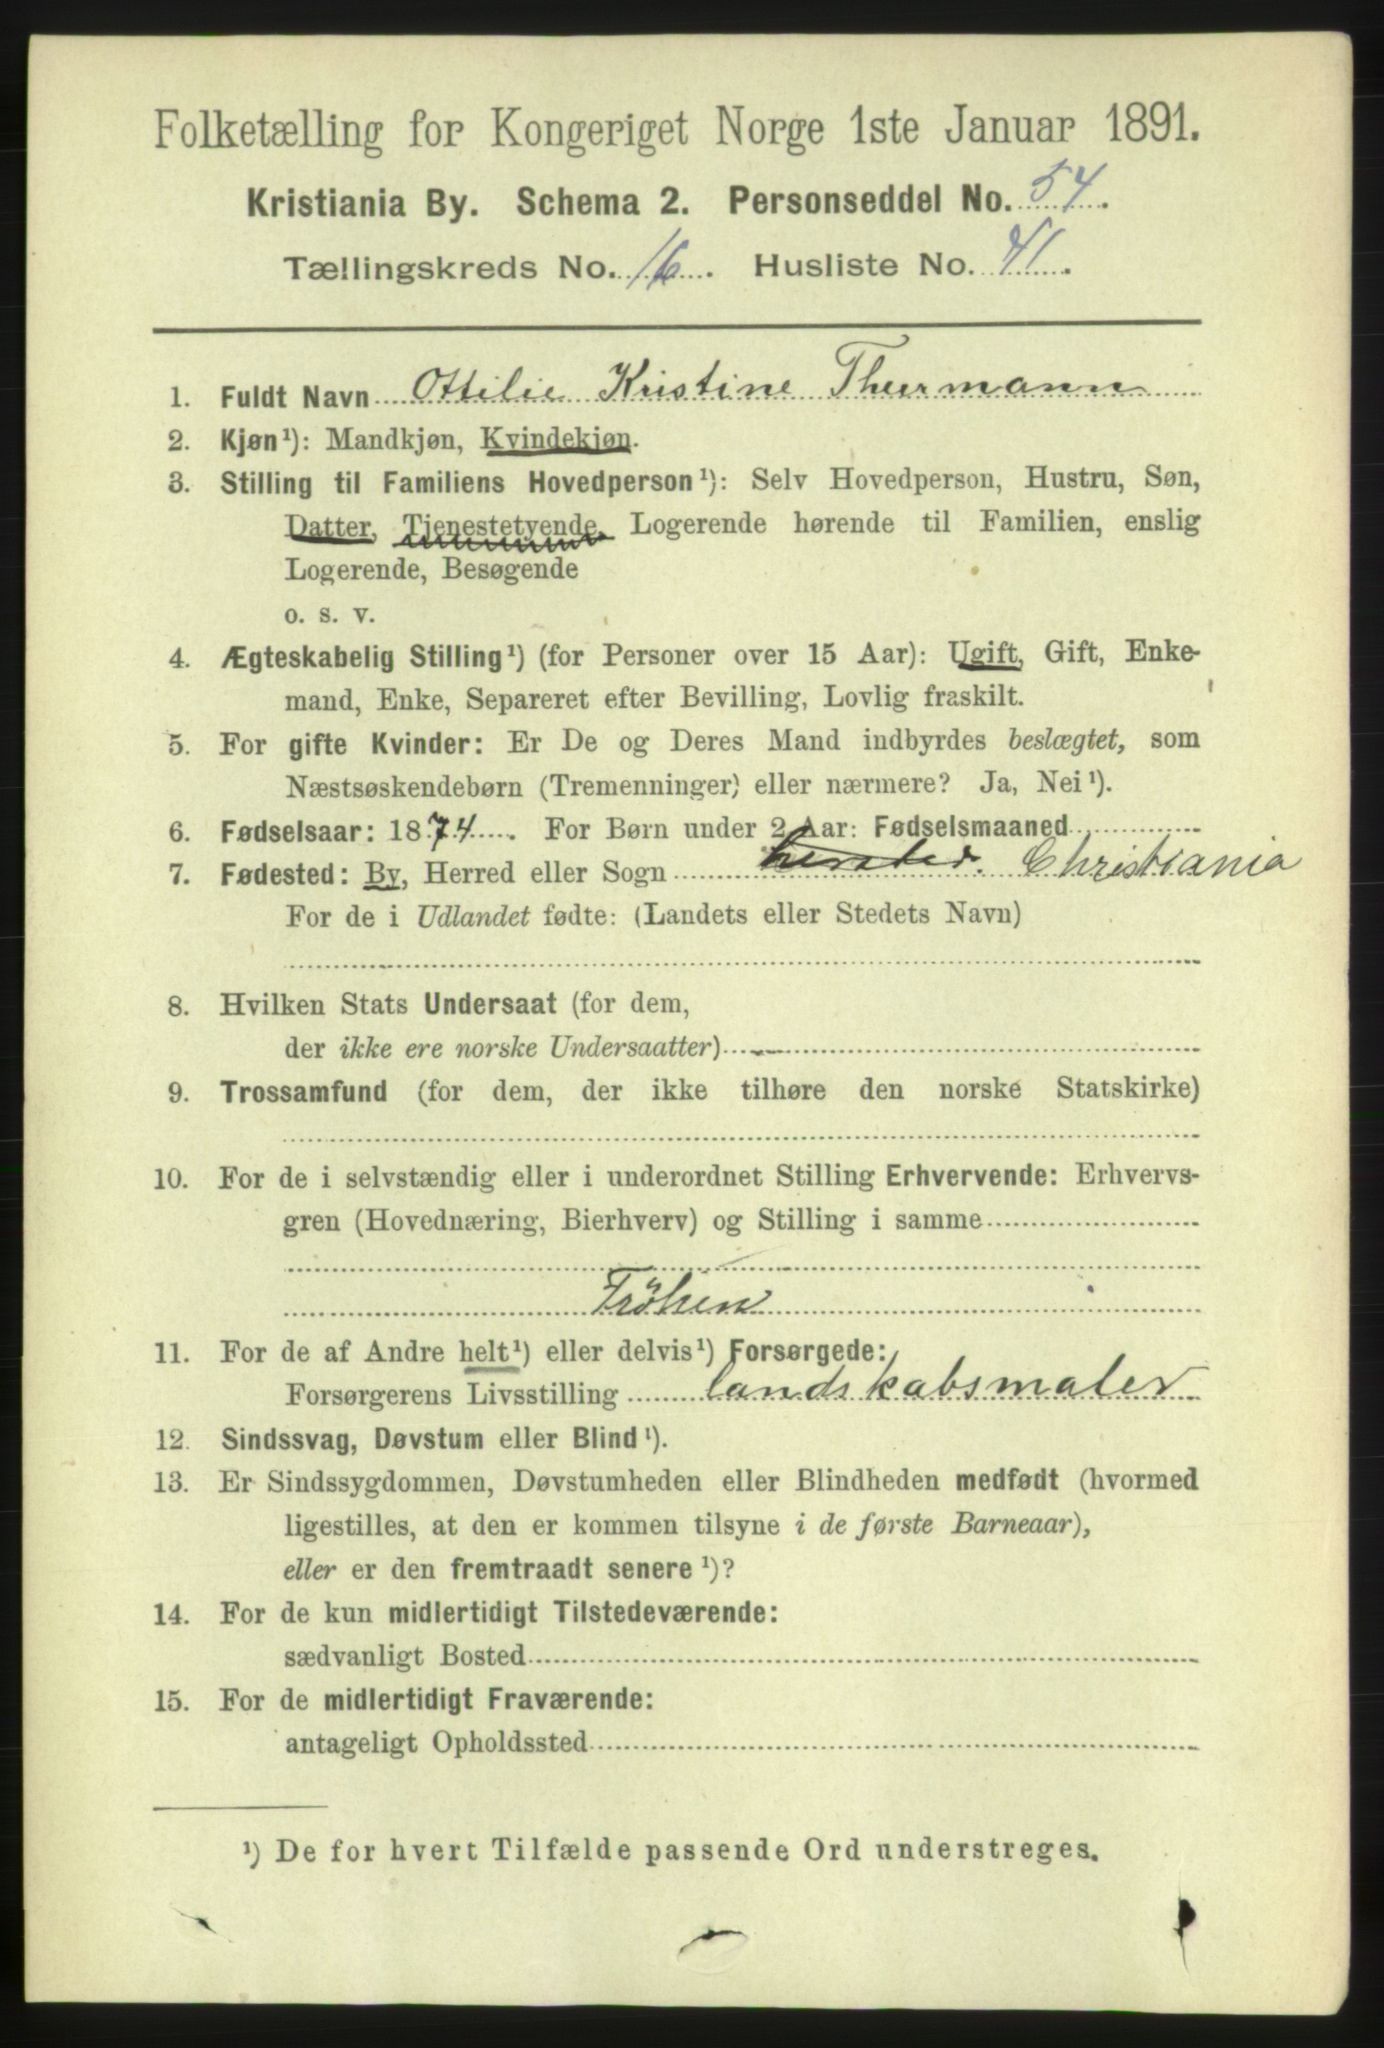 Folketælling for Kongeriget Norge 1ste Januar 1891.
Kristiania By. Schema 2. Personseddel No. 54.
Tællingskreds No. 16. Husliste No. 41.
1. Fuldt Navn Ottilie Kristine Thurmann
2. Kjøn¹): Mandkjøn, Kvindekjøn.
3. Stilling til Familiens Hovedperson¹): Selv Hovedperson, Hustru, Søn,
Datter, Tjenestetyende, Logerende hørende til Familien, enslig
Logerende, Besøgende
o. s. v.
4. Ægteskabelig Stilling¹) (for Personer over 15 Aar): Ugift, Gift, Enke-
mand, Enke, Separeret efter Bevilling, Lovlig fraskilt.
5. For gifte Kvinder: Er De og Deres Mand indbyrdes beslægtet, som
Næstsøskendebørn (Tremenninger) eller nærmere? Ja, Nei¹).
6. Fødselsaar: 1874. For Børn under 2 Aar: Fødselsmaaned
7. Fødested: By, Herred eller Sogn Christiania
For de i Udlandet fødte: (Landets eller Stedets Navn)
8. Hvilken Stats Undersaat (for dem,
der ikke ere norske Undersaatter)
9. Trossamfund (for dem, der ikke tilhøre den norske Statskirke)
10. For de i selvstændig eller i underordnet Stilling Erhvervende: Erhvervs-
gren (Hovednæring, Bierhverv) og Stilling i samme
Fröken
11. For de af Andre helt¹) eller delvis¹) Forsørgede:
Forsørgerens Livsstilling landskabsmaler
12. Sindssvag, Døvstum eller Blind¹).
13. Er Sindssygdommen, Døvstumheden eller Blindheden medfødt (hvormed
ligestilles, at den er kommen tilsyne i de første Barneaar),
eller er den fremtraadt senere¹)?
14. For de kun midlertidigt Tilstedeværende:
sædvanligt Bosted
15. For de midlertidigt Fraværende:
antageligt Opholdssted
¹) De for hvert Tilfælde passende Ord understreges.